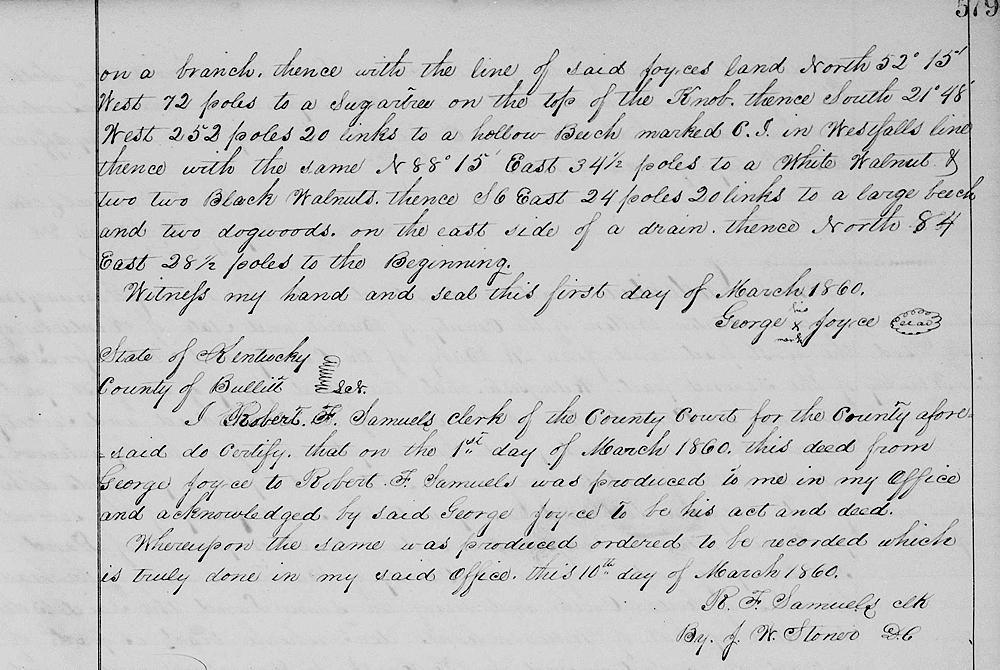 579
on a branch. thence with the line of said Joyces land North 52° 15'
West 72 poles to a Sugartree on the top of the Knob. thence South 21° 48'
West 252 poles 20 links to a hollow Beech marked C. J. in Westfalls line
thence with the same N 88° 15' East 34 1/2 poles to a White Walnut &
two two Black Walnuts. thence S 6 East 24 poles 20 links to a large beech
and two dogwoods. on the east side of a drain. thence North 84
East 28 1/2 poles to the Beginning.
Witness my hand and seal this first day of March 1860.
his
George X Joyce seal
mark
State of Kentucky
County of Bullitt Sct.
I Robert. F. Samuels clerk of the County Court for the County afore-
-said do Certify. that on the 1st day of March 1860. this deed from
George Joyce to Robert F. Samuels was produced to me in my Office
and acknowledged by said George Joyce to be his act and deed.
Whereupon the same was produced ordered to be recorded which
is truly done in my said Office. this 10th day of March 1860.
R. F. Samuels clk
By. J. W. Stone D.C